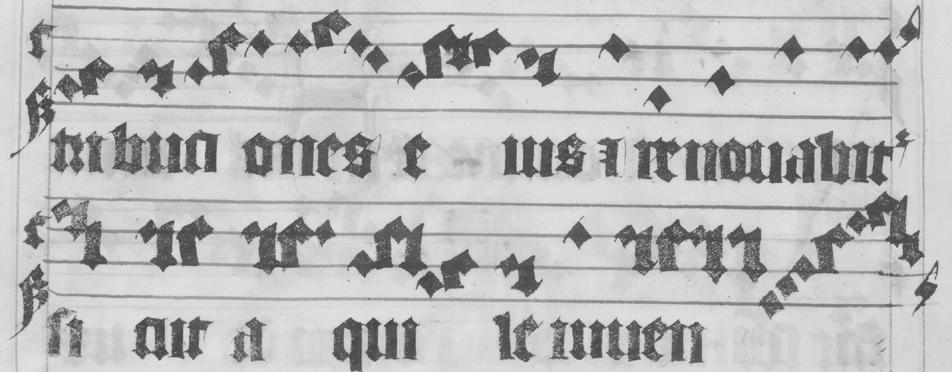 tribuci ones e ius ⁊ renouabit᷑
si cut a qui le iuuen